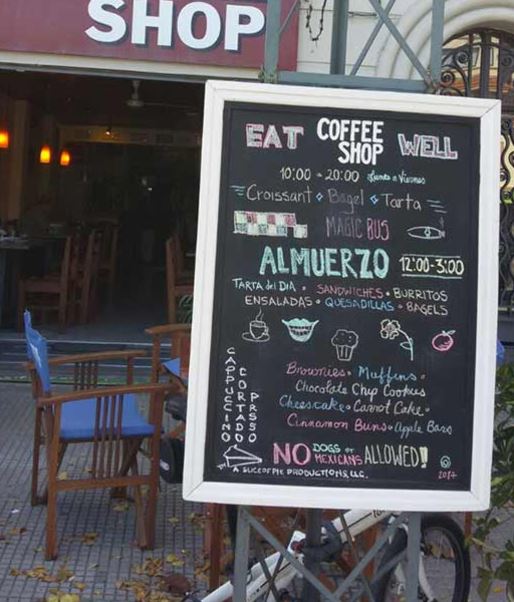 SHOP
EAT COFFEE SHOP WELL
10:00 - 20:00 Lunes a Viernes
Croissant Bagel Tarta
MAGIC BUS
ALMUERZO 12:00-3:00
TARTA del DIA • SANDWICHES • BURRITOS
ENSALADAS • QUESADILLAS • BAGELS
CAPPUCCINO
CORTADO
Brownies • Muffins •
Chocolate Chip Cookies
Cheescake • Carrot Cake •
Cinnamon Buns • Apple Bars
NO DOGS or MEXICANS ALLOWED!
A SLICE OF PIE PRODUCTIONS, LLC.